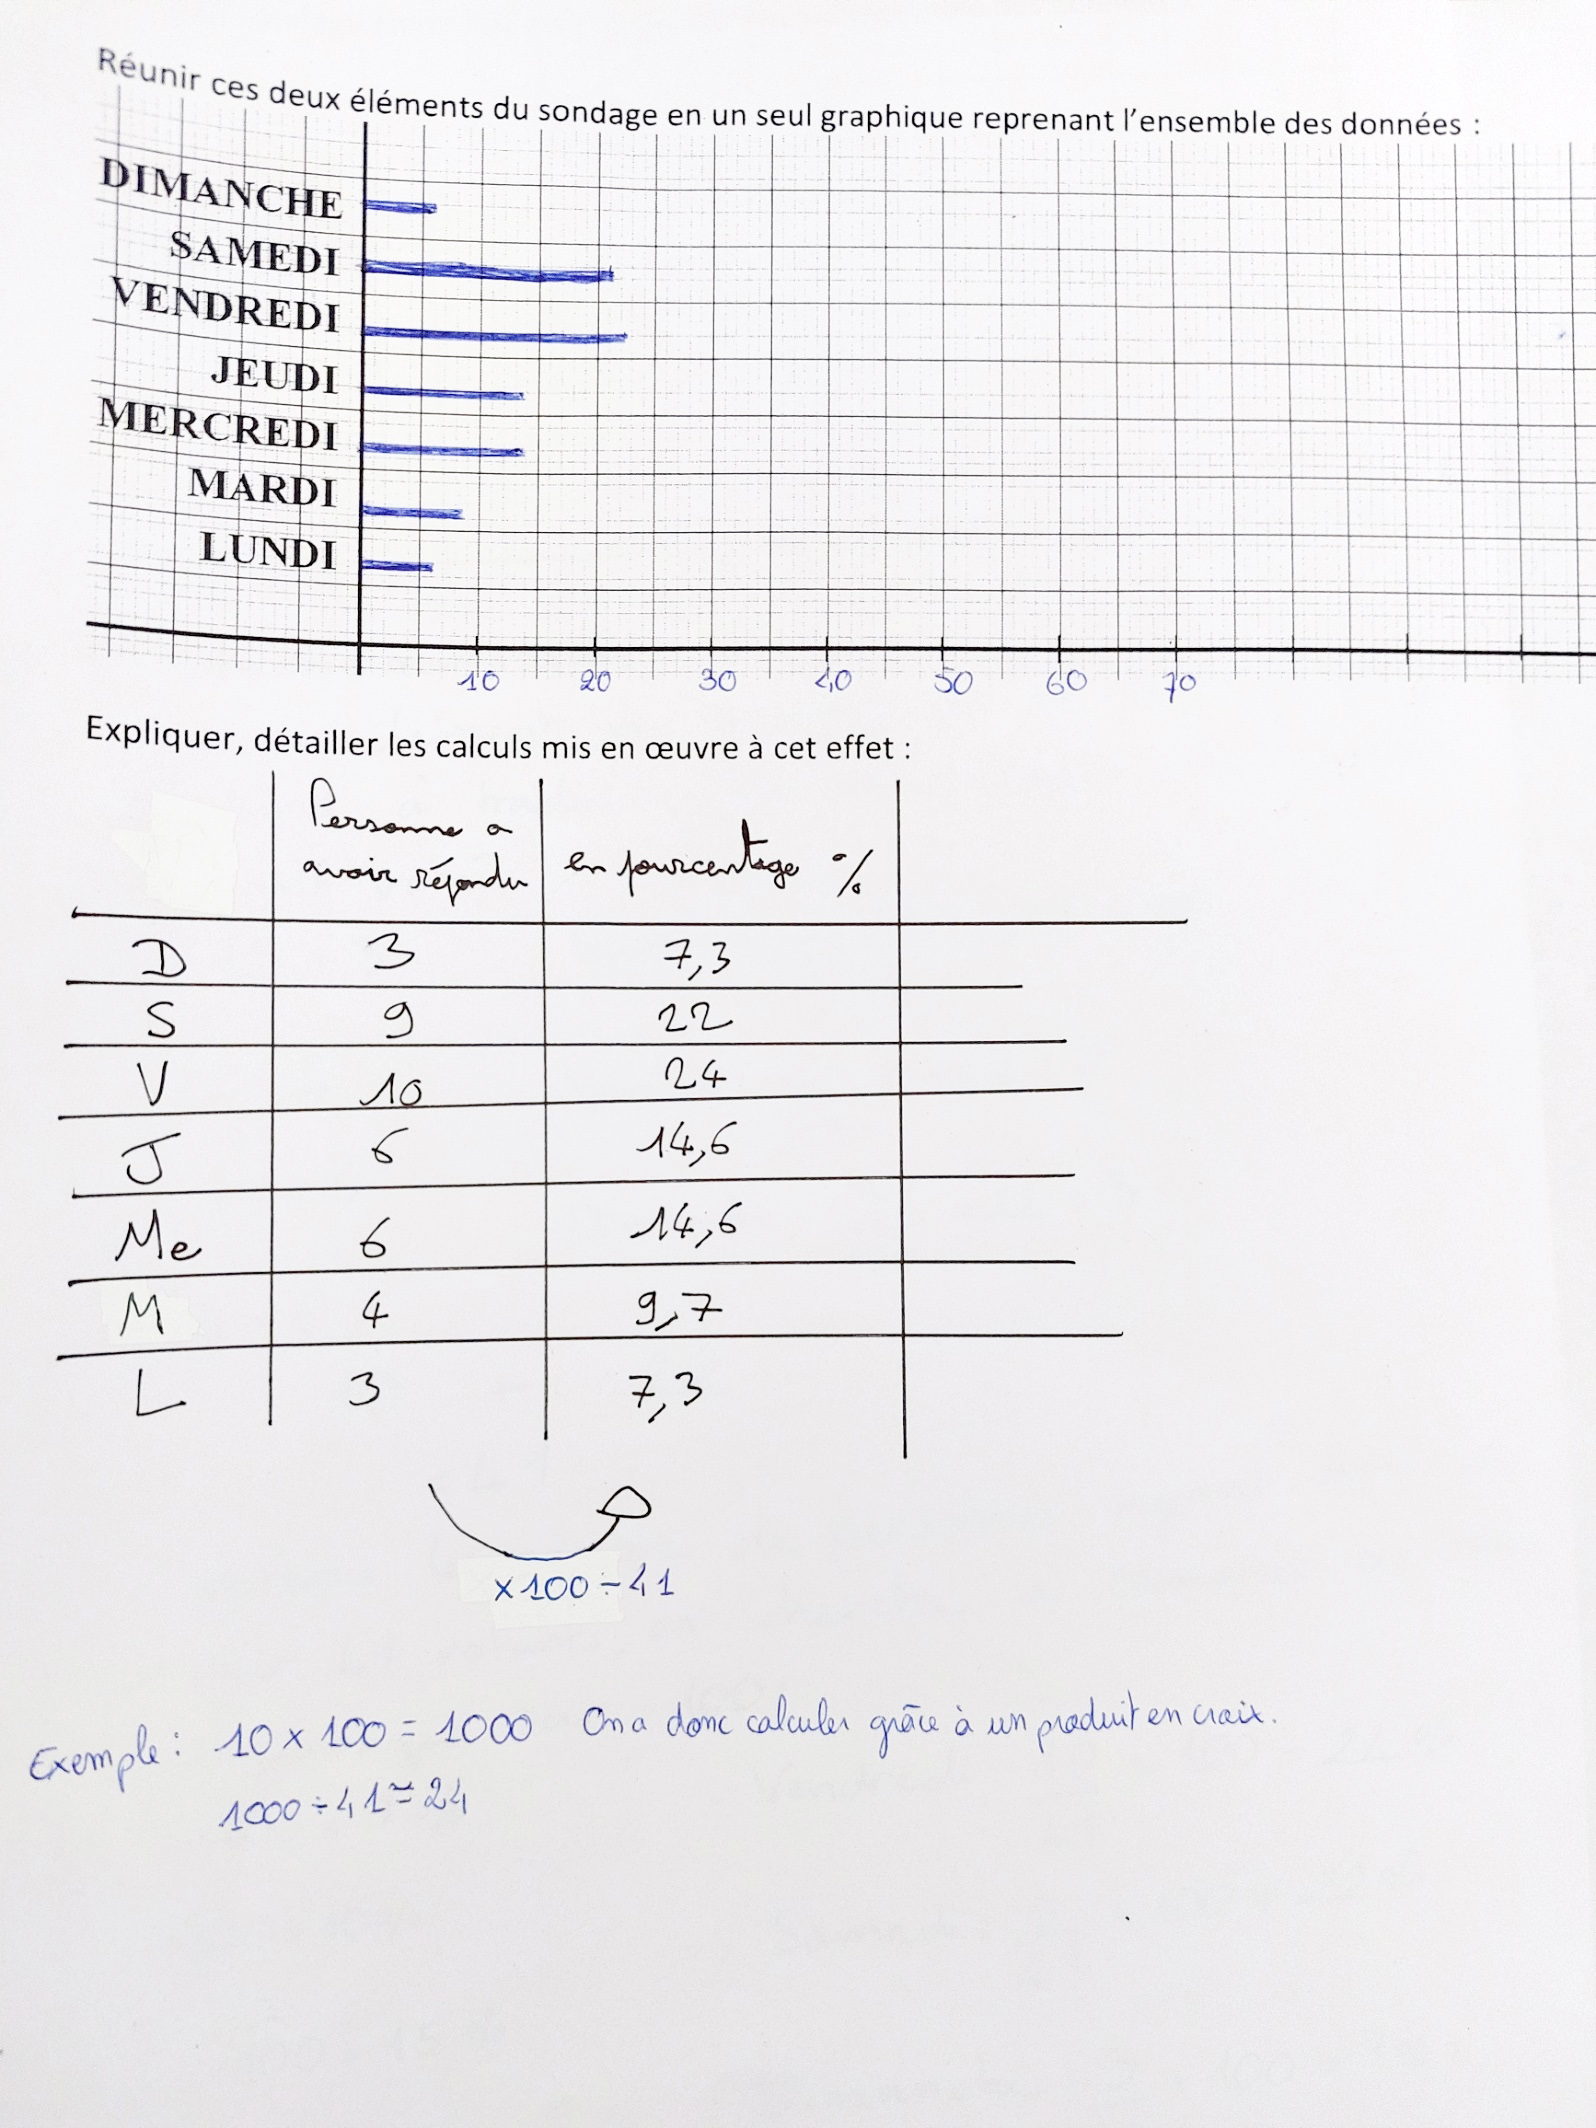 Réunir ces deux éléments du sondage en un seul graphique reprenant l'ensemble des données :
DIMANCHE
SAMEDI
VENDREDI
JEUDI
MERCREDI
MARDI
LUNDI
10 20 30 40 50 60 70
Expliquer, détailler les calculs mis en œuvre à cet effet :
Personne a
avoir répondu en pourcentage %
D 3 7,3
S 9 22
V 10 24
J 6 14,6
Me 6 14,6
M 4 9,7
L 3 7,3
x100÷41
Exemple : 10 x 100 = 1000 On a donc calculer grâce à un produit en croix.
1000÷41≃24